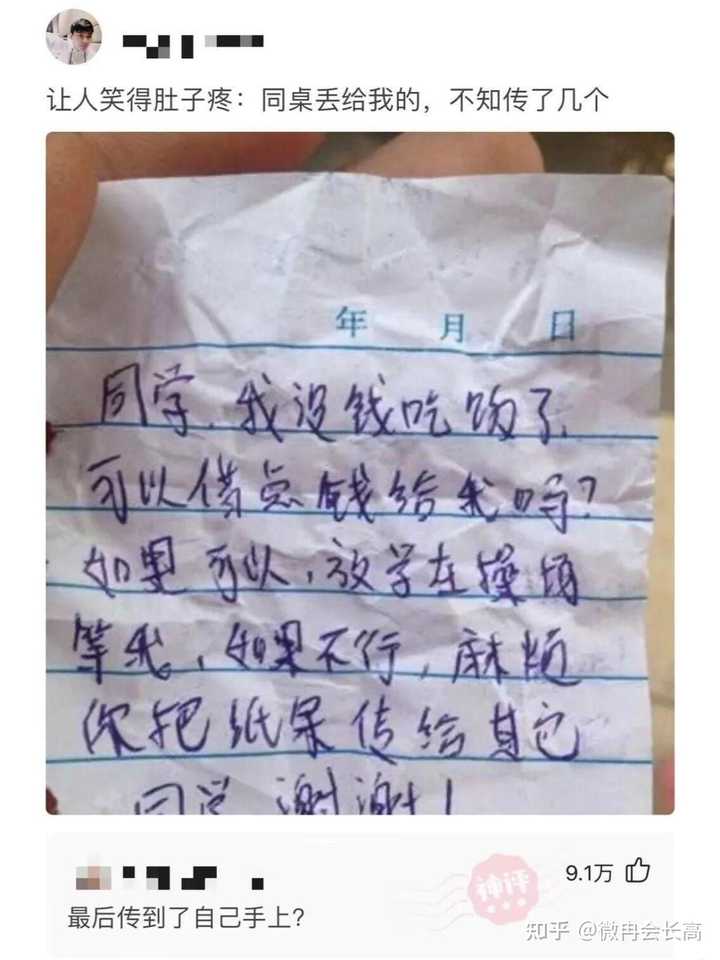 让人笑得肚子疼：同桌丢给我的，不知传了几个
年 月 日
同学，我没钱吃饭了
可以借点钱给我吗？
如果可以，放学在操场
等我，如果不行，麻烦
你把纸条传给其它
同学 谢谢！
神评
9.1万
最后传到了自己手上？
知乎 @微冉会长高